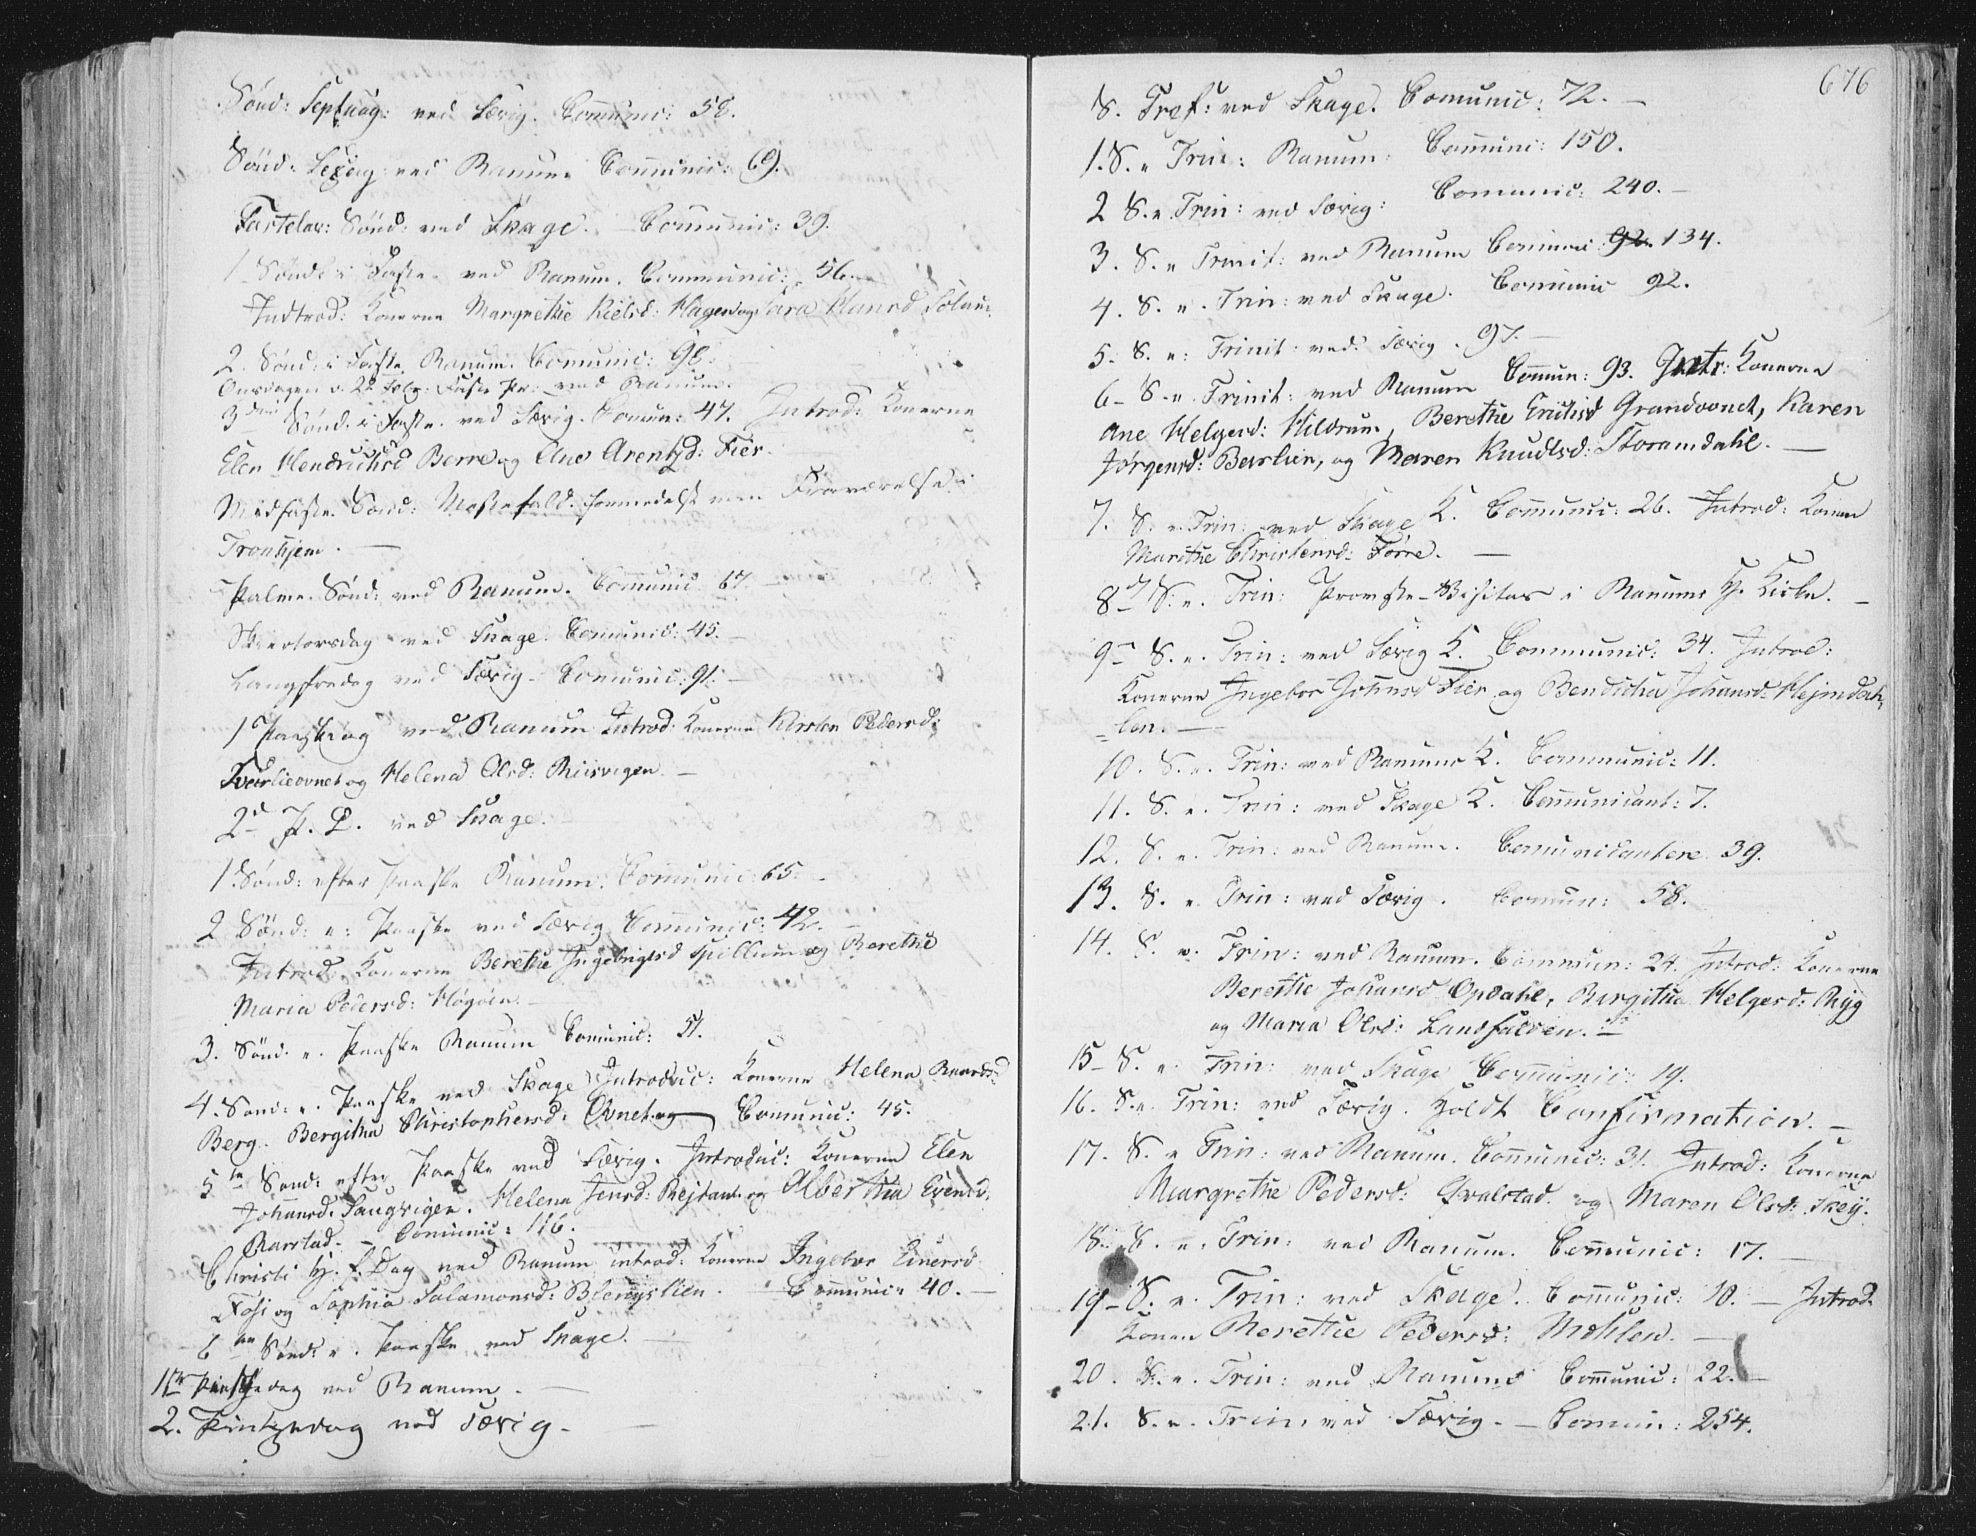 Sønd: Septuag: ved Særig. Communic: 58.
Sønd: Sexag: ved Ranum. Communic: 69.
Fastelav: Sønd: ved Skage. Communic: 39.
1 Sønd: i Faste. ved Ranum. Communic: 56.
Introd: Konerne Margrethe Nielsd: Hagen og Sara Hansd
2. Sønd: i Faste Ranum. Communic: 98.
Onsdagen d. 22 Febr: Faste Pr: ved Ranum.
3die Sønd. i Faste. ved Særig. Comun: 47. Introd: Konerne
Elen Hendrichsd Berre og Ane Arentzd: Fier.
Midfaste Sønd: Messefald formedelst min Fraværelse i
Tronhjem.
Palme Sønd: ved Ranum. Communic 67.
Skiertorsdag ved Skage. Comunic: 45.
Langfredag ved Særig. Comunic: 91.
1 Paaskedag ved Ranum Introd: Konerne Kirsten Pedersd:
Tvarlieovnet og Helena Olsd: Riisvigen.
2d P. D. ved Skage.
1 Sønd: efter Paaske Ranum. Communic: 65.
2 Sønd: e: Paaske ved Særig Communic: 42.
Introd: Konerne Berethe Ingebrigtsd Spillum og Berethe
Maria Pedersd: Høgøen.
3. Sønd. e. Paaske Ranum Comunic: 51.
4. Sønd: e. Paaske ved Skage Introduc: Konerne Helena
Berg. Bergitha Christophersd: Ovnet og Comunic: 45.
5te Sønd: efter Paaske ved Særig. Introduc: Konerne Elen
Johansd: Saugvigen. Helena Jensd: og Albertha Evensd:
Barstad. Comunic: 116.
Christi H. f. Dag ved Ranum introd: Konerne Ingebor Einersd
Fosi og Sophia Salamonsd: Blengslien. Communic: 40.
6te Sønd: e. Paaske ved Skage.
1ste Pintzedag ved Ranum.
2. Pintzedag ved Særig.
676
S. Tref: ved Skage. Comunic: 72.
1. S. e Trin: Ranum: Communic: 150.
2 S. e. Trin: ved Særig: Comunic: 240.
3. S. e Trinit: ved Ranum Comunic: 92. 134.
4. S. e. Trin: ved Skage. Comunic 92.
5. S. e: Trinit: ved Særig. 97.
6 S. e. Trinit: ved Ranum Commun: 93. Intr: Konerne
Ane Helgesd: Hildrum, Berethe Erichsd Grandovnet, Karen
Jørgensd: Barlien, og Maren Knudtsd: Storamdahl.
7. S. e. Trin: ved Skage K. Communic: 26. Introd: Konen
Marithe Christensd: Førre.
8d S. e. Trin: Provste-Visitas i Ranums H. Kirke.
9 S. e. Trin: ved Særig K. Communic: 34. Introd:
Konerne Ingebor Johnsd Fier og Bendicha Johansd: Hejmdah,
=len.
10. S. e. Trin: ved Ranums K. Communic: 11.
11. S. e. Trin: ved Skage K. Communicant: 7.
12. S. e. Trin: ved Ranum. Comunicantere 39.
13. S. e Trin: ved Særig. Comun: 58.
14. S. e. Trin: ved Ranum. Commun: 24. Introd: Konerne
Berethe Johansd Opdahl, Birgitha Helgesd: Ryg
og Maria Olsd: Landfalden.
15 S. e Trin: ved Skage Communic: 19.
16. S. e. Trin: ved Særig. Holdt Confirmation.
17. S. e Trin: ved Ranum. Communic: 31. Introd: Konerne
Margrethe Pedersd: Qvalstad og Maren Olsd: Skey.
18. S. e. Trin: ved Ranum. Communic: 17.
19 S: e. Trin: ved Skage. Communic: 10. Introd.
Konen Berethe Pedersd: Møhlen.
20. S. e. Trin: ved Ranum Communic: 22.
21. S. e. Trin: ved Særig. Comun: 254.